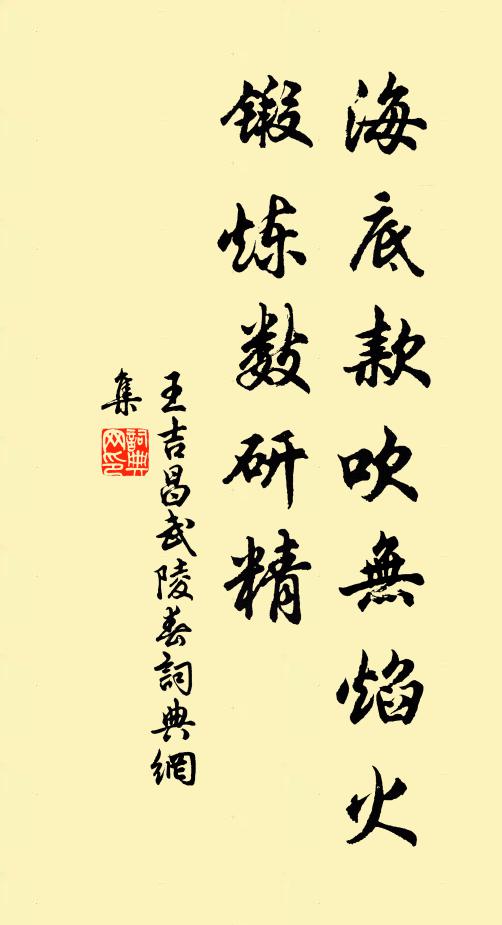 海底款吹無焰火
鍛炼数研精
王吉昌武陵春詞典網
集
詞典網印